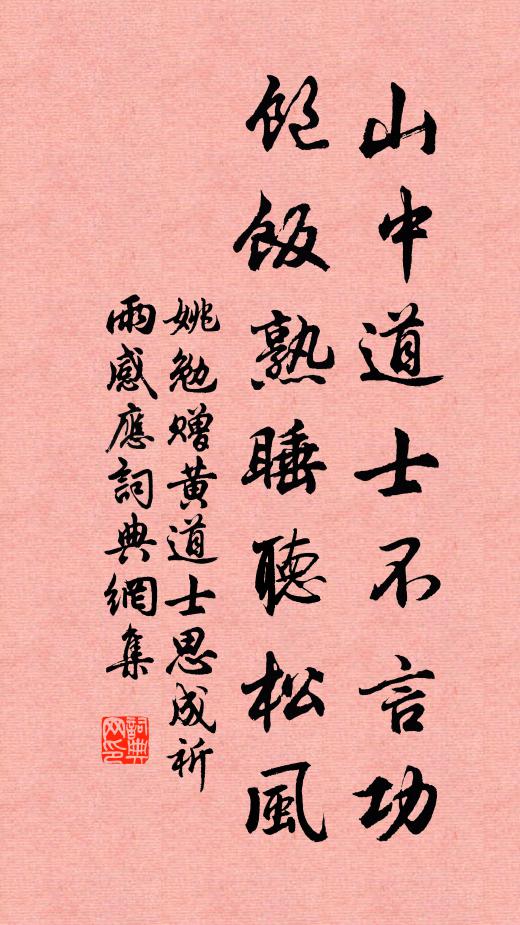 山中道士不言功
飽飯熟睡聽松風
姚勉赠黄道士思成祈
雨感應詞典網集
詞典網印